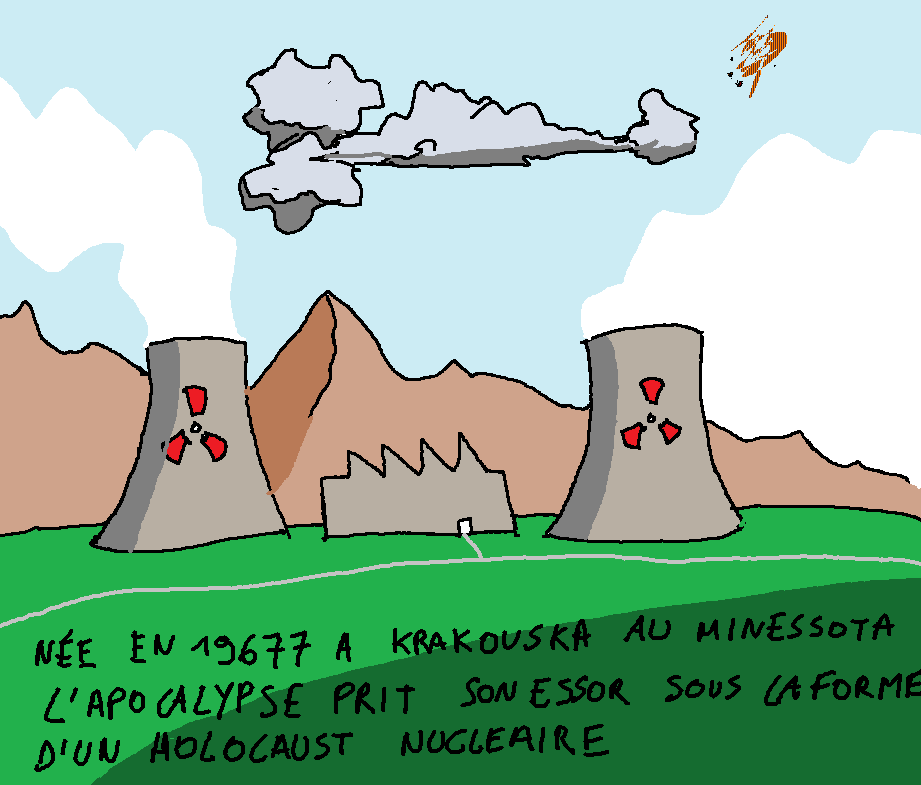 NÉE EN 19677 A KRAKOUSKA AU MINESSOTA
L'APOCALYPSE PRIT SON ESSOR SOUS LA FORME
D'UN HOLOCAUST NUCLEAIRE